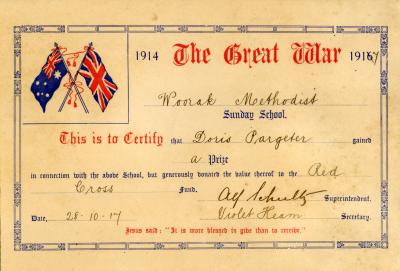 1914 The Great War 1917
Woorak Methodist
Sunday School.
This is to Certify that Doris Pargeter gained
a Prize
in connection with the above School, but generously donated the value thereof to the Red
Cross Fund. Alf Schultz Superintendent.
Date, 28-10-17 Violet Hearn Secretary.
Jesus said: "It is more blessed to give than to receive."